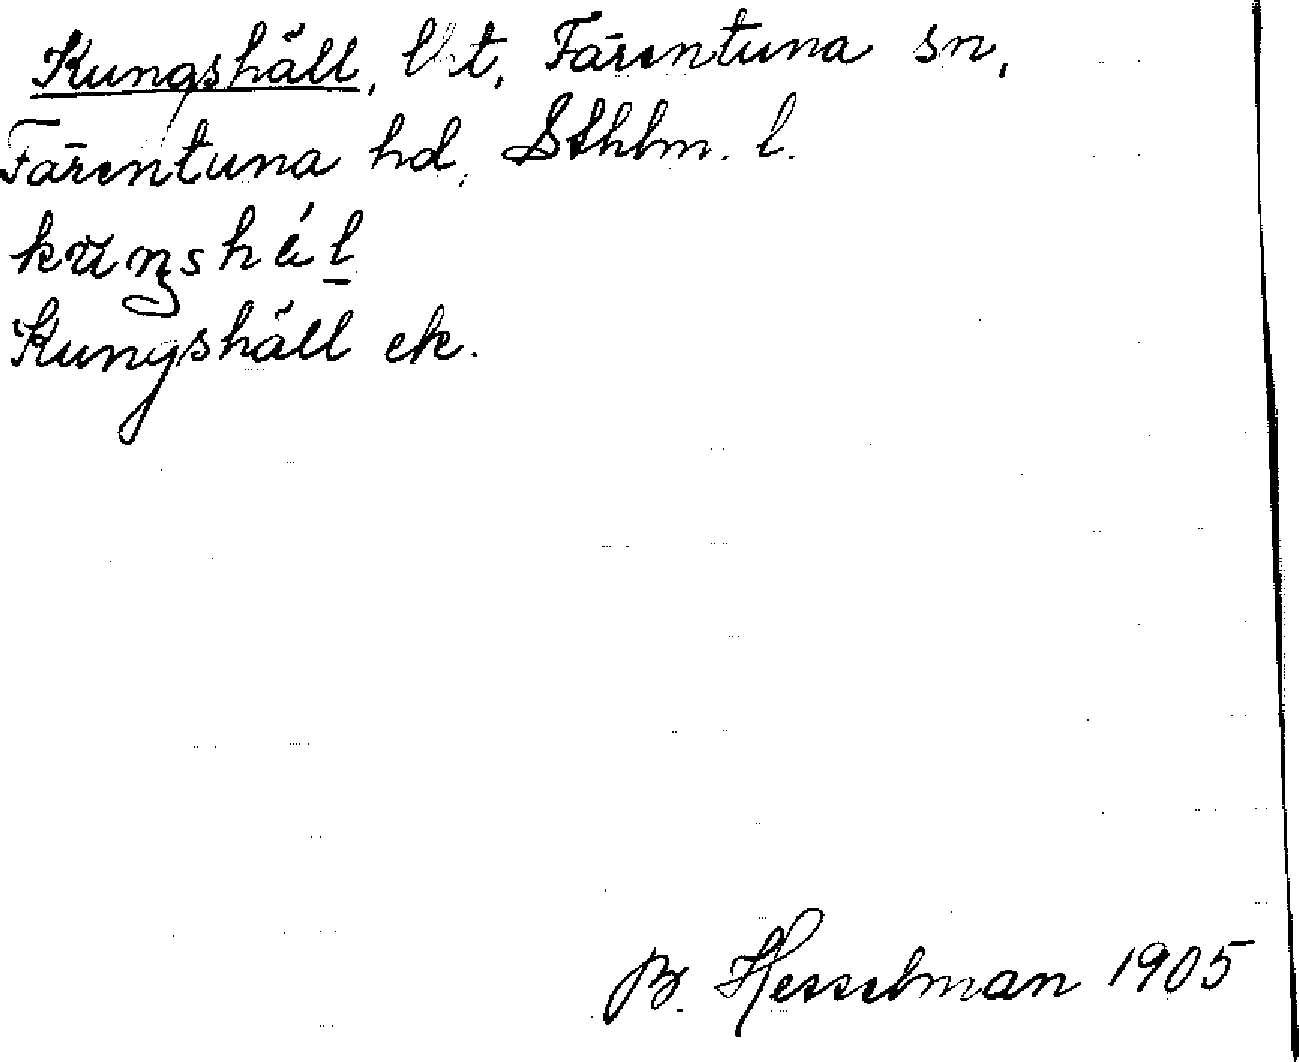 Kungshäll, lht, Färentuna sn,
Färentuna hd, Sthlm. l.
Kungshäll ek.
B. Hesselman 1905